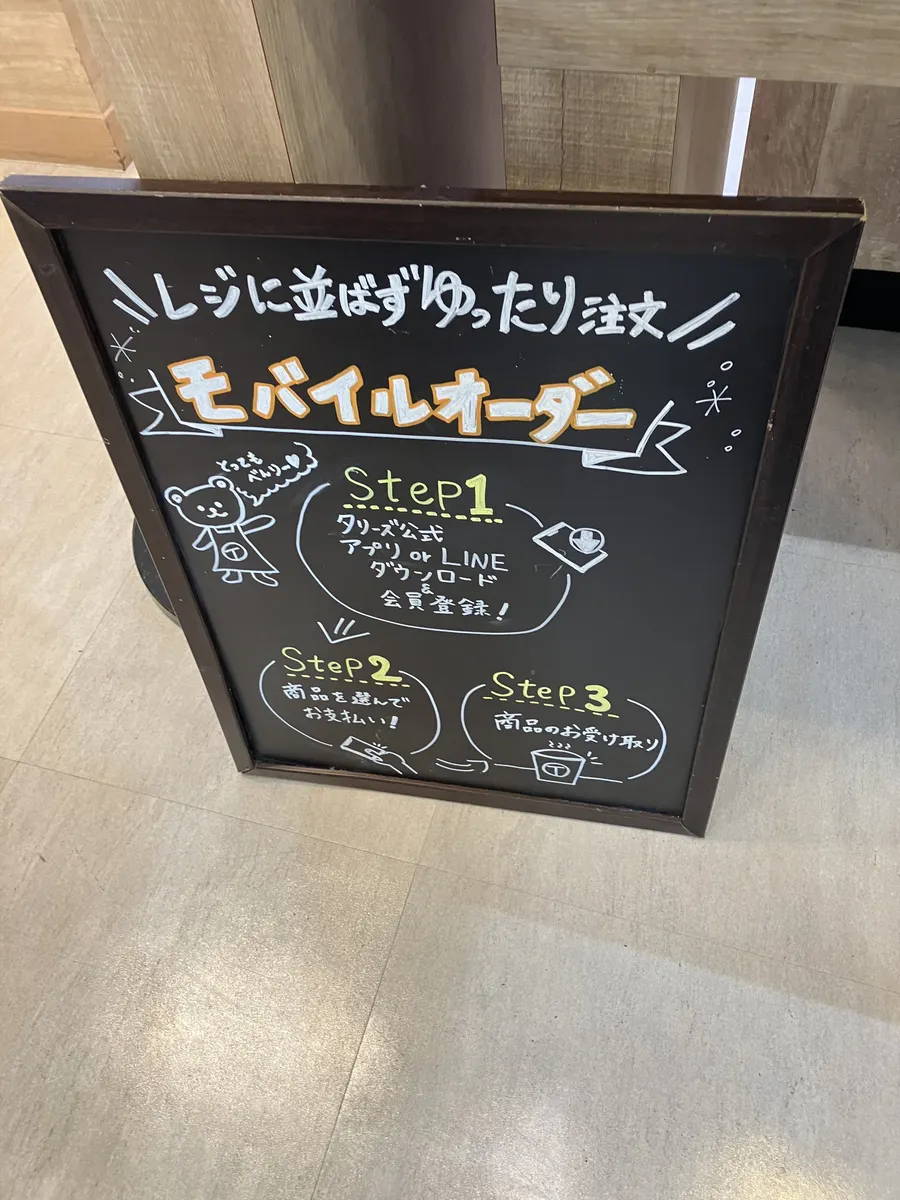 レジに並ばずゆったり注文
モバイルオーダー
とっても
べんりー♡
Step1
タリーズ公式
アプリ or LINE
ダウンロード
&
会員登録!
Step2
商品を選んで
お支払い!
Step3
商品のお受け取り
T
T